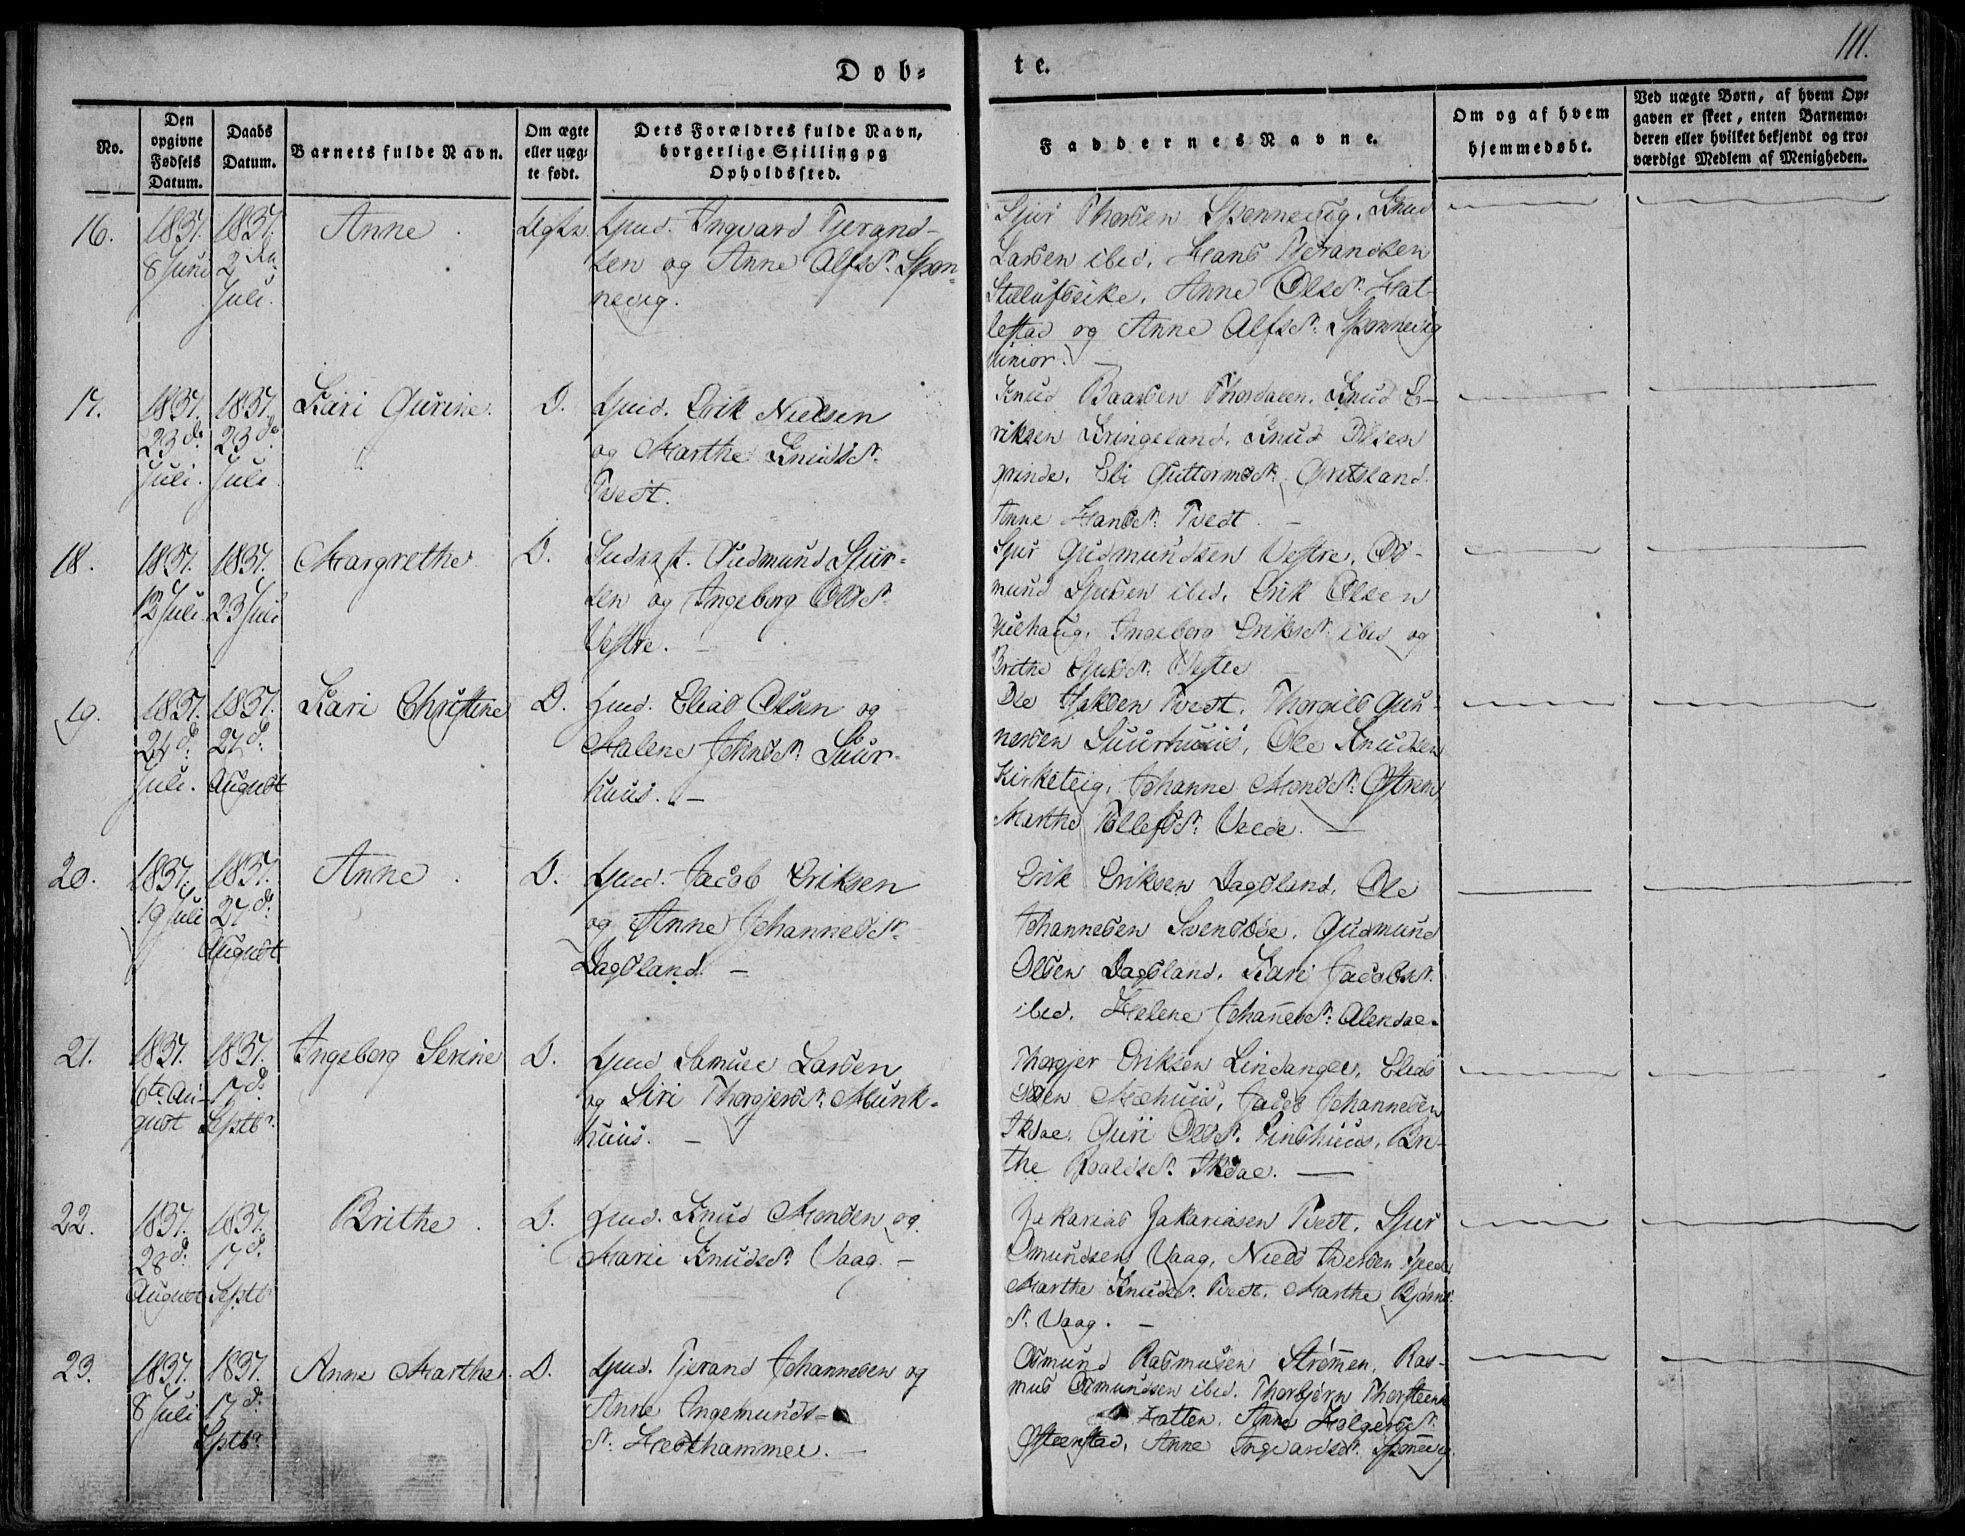 Døb-
te.
111.
No.
Den
opgivne
Fødsels
Datum.
Daabs
Datum.
Barnets fulde Navn.
Om ægte
eller uæg-
te født.
Dets Forældres fulde Navn,
borgerlige Stilling og
Opholdssted.
Faddernes Navne.
Om og af hvem
hjemmedøbt.
Ved uægte Børn, af hvem Op-
gaven er skeet, enten Barnemo-
deren eller hvilket bekjendt og tro-
værdigt Medlem af Menigheden.
16.
1837.
8 Juni
1837.
2den
Juli.
Anne
Ægte.
Gmd. Ingvard Tjerand-
sen og Anne Alfsdr. Spøn-
nevig.
Sjur Thorsen Spønnevig, Knud
Larsen ibid, Hans Tjerandsen
Anne Olsdr. Hat-
lestad og Anne Alfsdr. Spønnevig
junior.
17.
1837.
23de
Juli.
1837.
23de
Juli
Kari Gurine.
D.
Gmd. Erik Nielsen
og Marthe Knudsdr.
Tvedt.
Knud Baarsen Thordalen, Knud E-
riksen Kringeland, Knud Olsen
Grinde, Eli Guttormsdr.
Anne Hansdr. Tvedt.
18.
1837.
12 Juli.
1837.
23 Juli
Margrethe.
D.
Gudmund Sjur-
sen og Ingeborg Olsdr.
Vestre.
Sjur Gudmundsen Vestre, Os-
mund Sjursen ibid, Erik Olsen
Ingeborg Eriksdr. ibid og
Brithe Sjursdr. Vestre
19.
1837.
24de
Juli.
1837.
27de
August
Kari Christine
D.
Gmd. Elias Olsen og
Malene Johnsdr. Suur-
huus.
Ole Tvedt, Thorgils Gun-
nersen Suurhuus, Ole Knudsen
Kirketeig, Johanne Monsdr. Østrem
Marthe Tollefsdr.
20.
1837.
19 Juli
1837.
27de
August
Anne
D.
Gmd. Jacob Eriksen
og Anne Johannesdr.
Dagsland.
Erik Eriksen Dagsland, Ole
Johannesen Svendsbøe, Gudmund
Olsen Dagsland, Kari Jacobsdr.
ibid, Helene Johannesdr.
21.
1837.
6te Au-
gust
1837.
17de
Septbr.
Ingeborg Serine
D.
Gmd Samuel Larsen
og Siri Thorgjersdr. Munk-
huus.
Thorgjer Eriksen Lindanger, Elias
Jacob Johannesen
Guri Olsdr. Bri-
the Roaldsdr.
22.
1837.
28de
August
1837.
17de
Septbr
Brithe
D.
Gmd. Knud Monsen og
Marie Knudsdr. Vaag.
Zakarias Zakariasen Tvedt, Sjur
Omundsen Vaag, Niels Iversen
Marthe Knudsdr. Tvedt, Marthe Bjørns-
dr. Vaag.
23.
1837.
8 Juli
1837.
17de
Septbr.
Anne Marthe.
D.
Gmd. Tjerand Johannesen og
Anne Ingemunds-
dr. Hesthammer.
Osmund Rasmusen Strømen, Ras-
mus Osmundsen ibid, Thorbjørn Thorsteens
Hatten, Anne Holgersdr.
Østenstad, Anne Ingvardsdr. Spønnevig